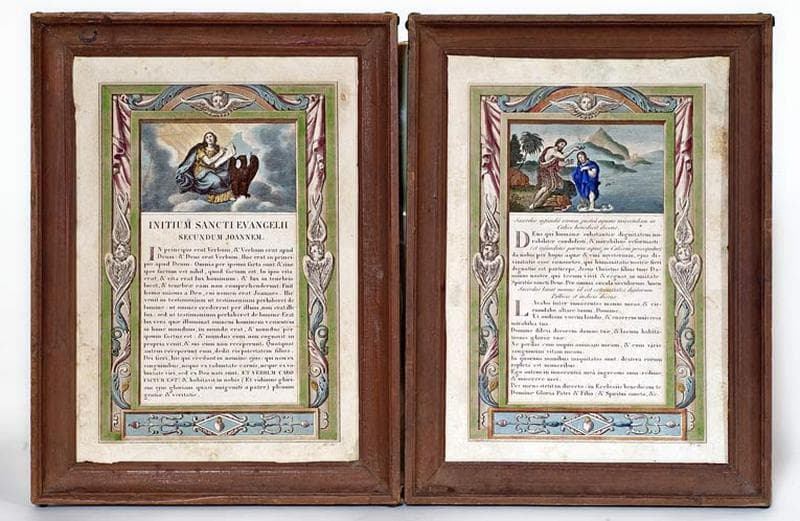 INITIUM SANCTI EVANGELII
SECUNDUM JOANNEM.
IN principio erat Verbum, & Verbum erat apud
Deum: & Deus erat Verbum. Hoc erat in princi-
pio apud Deum. Omnia per ipsum facta sunt & sine
ipso factum est nihil, quod factum est. In ipso vita
erat, & vita erat lux hominum: & lux in tenebris
lucet, & tenebræ eam non comprehenderunt. Fuit
homo missus a Deo, cui nomen erat Joannes. Hic
venit in testimonium ut testimonium perhiberet de
lumine: ut omnes crederent per illum, non erat ille
lux: sed ut testimonium perhiberet de lumine. Erat
lux vera quæ illuminat omnem hominem venientem
in hunc mundum, in mundo erat, & mundus per
ipsum factus est: & mundus eum non cognovit in
propria venit, & sui eum non receperunt. Quotquot
autem receperunt eum, dedit eis potestatem filios
Dei fieri, his qui credunt in nomine ejus: qui non ex
sanguinibus, neque ex voluntate carnis, neque ex vo-
luntate viri, sed ex Deo nati sunt. ET VERBUM CARO
FACTUM EST: & habitavit in nobis (Et vidimus glori-
am ejus gloriam quasi unigeniti a patre) plenum
gratiæ & veritatis.
Sacerdos
Calice benedicit dicens.
DEus qui humanæ substantiæ dignitatem mi-
rabiliter condidisti, & mirabilius reformasti:
da nobis per hujus aquæ & vini mysterium, ejus di-
vinitatis esse consortes, qui humanitatis nostræ fieri
dignatus est particeps, Jesus Christus filius tuus Do-
minus noster, qui tecum vivit & regnat in unitate
Spiritus sancti Deus. Per omnia sæcula sæculorum Amen
Sacerdos lavat manus id est extremitates digitorum
Pollicis et indicis dicens
LAvabo inter innocentes manus meas, & cir-
cumdabo altare tuum, Domine,
Et audiam vocem laudis, & enarrem universa
mirabilia tua.
Domine dilexi decorem domus tuæ, & locum habita-
tionis gloriæ tuæ.
Ne perdas cum impiis animam meam, & cum viris
sanguinum vitam meam.
In quorum manibus iniquitates sunt: dextera eorum
repleta est muneribus.
Ego autem in innocentia mea ingressus sum: redime
& miserere mei.
Per meus stetit in directo: in Ecclesiis benedicam te
Domine Gloria Patri & Filio, & Spiritui sancto, &c.